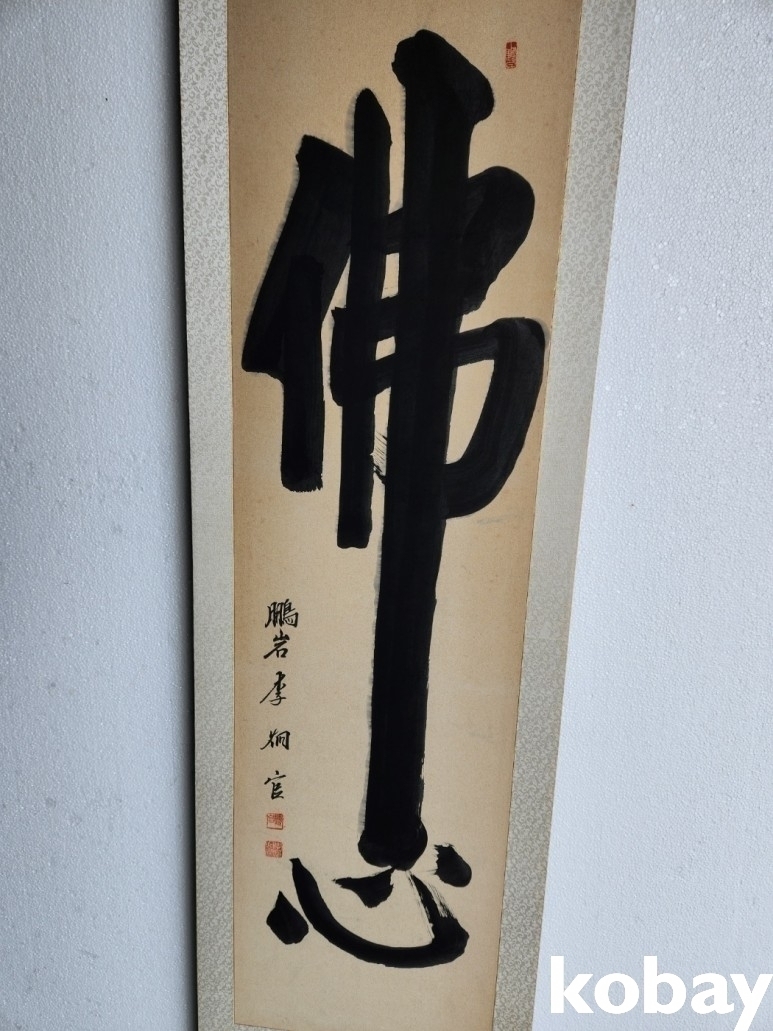 佛心
鵬岩 李炯官
kobay